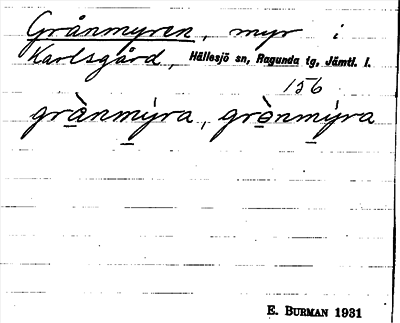 Grånmyren, myr i
Karlsgård, Hällesjö sn, Ragunda tg, Jämtl. l.
156
grànmýra, grònmýra
E. BURMAN 1931